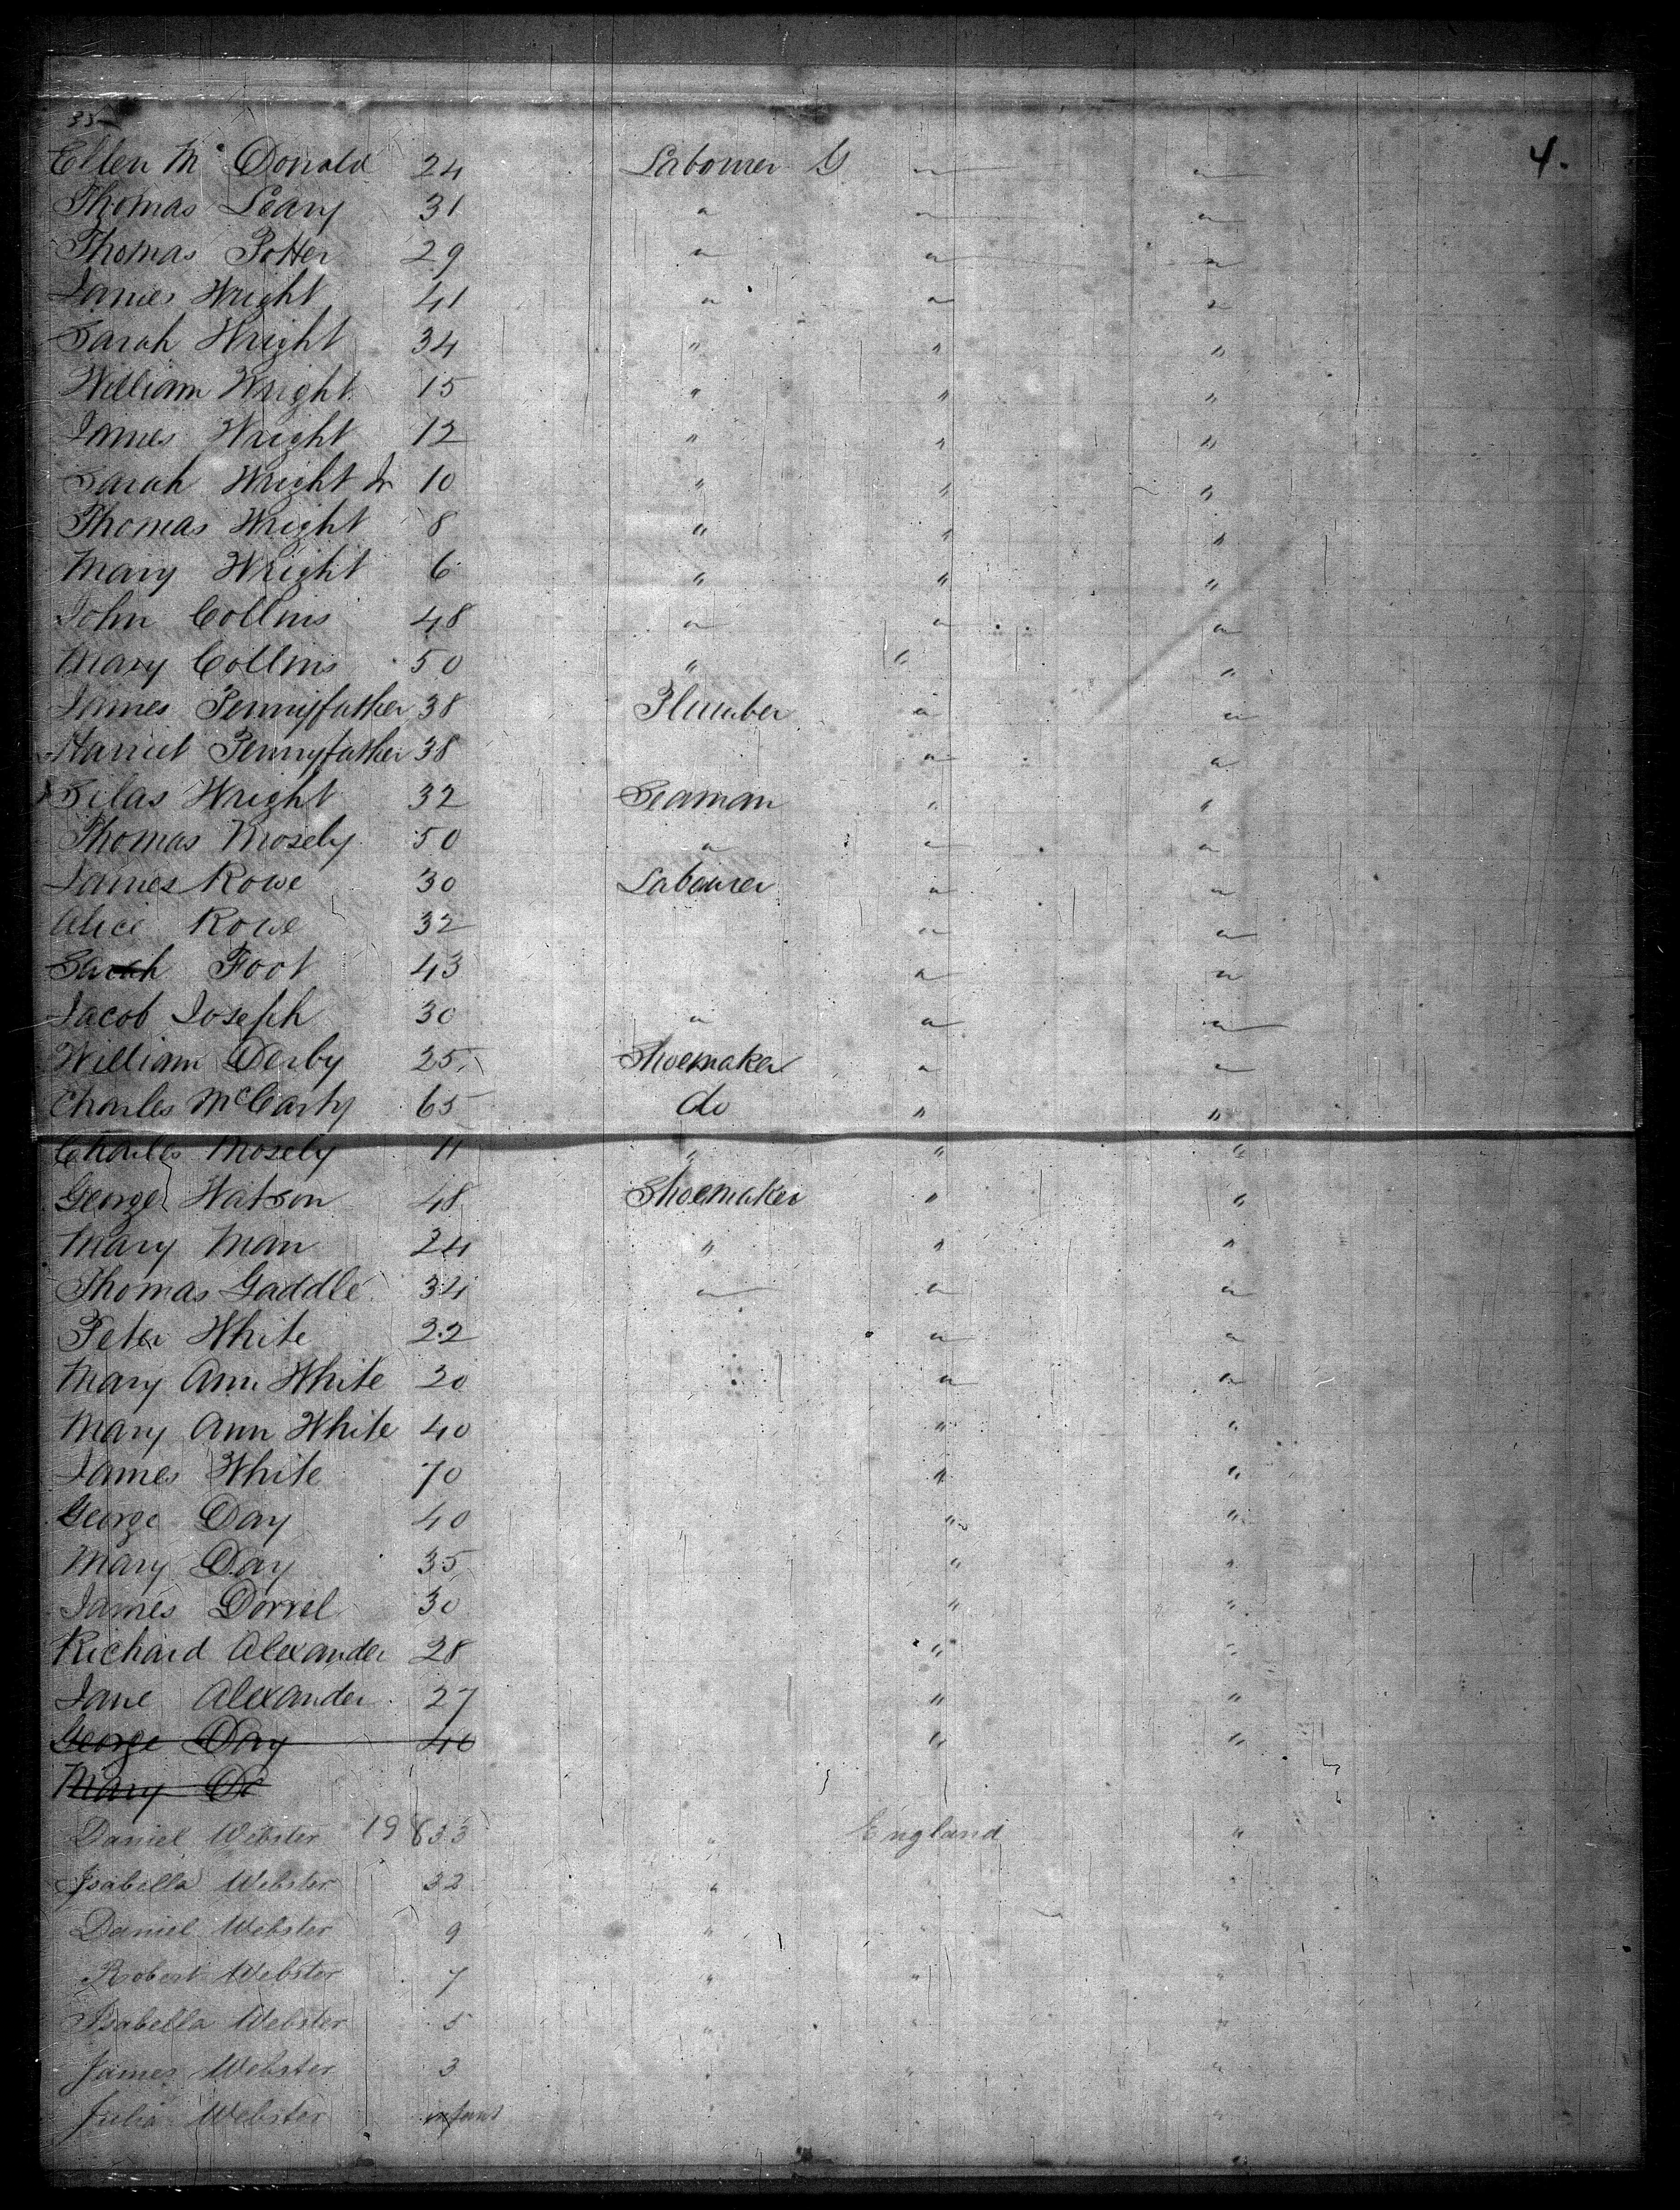 35
Ellen Mc Donald 24 Labourer G " " 4.
Thomas Leary 31 " " "
Thomas Potter 29 " " "
James Wright 41 " " "
Sarah Wright 34 " " "
William Wright 15 " " "
James Wright 12 " " "
Sarah Wright Jr 10 " " "
Thomas Wright 8 " " "
Mary Wright 6 " " "
John Collins 48 " " "
Mary Collins 50 " " "
James Pennyfather 38 Plumber " "
Harriet Pennyfather 38 " "
Silas Wright 32 Seaman " "
Thomas Mosely 50 " " "
James Rowe 30 Labourer " "
Alice Rowe 32 " "
Sarah Foot 43 " "
Jacob Joseph 30 " " "
William Derby 25 Shoemaker " "
Charles McCarty 65 do " "
Charles Mosely 11 " " "
George Watson 48 Shoemaker " "
Mary Man 24 " " "
Thomas Gaddle 34 " " "
Peter White 22 " "
Mary Ann White 20 " "
Mary Ann White 40 " "
James White 70 " "
George Day 40 " "
Mary Day 35 " "
James Dorrel 30 " "
Richard Alexander 28 " "
Jane Alexander 27 " "
George Day 40 " "
Mary Do
Daniel Webster 198 33 " England "
Isabella Webster 32 " "
Daniel Webster 9 " " "
Robert Webster 7 " " "
Isabella Webster 5 " " "
James Webster 3 " " "
Julia Webster infant " "